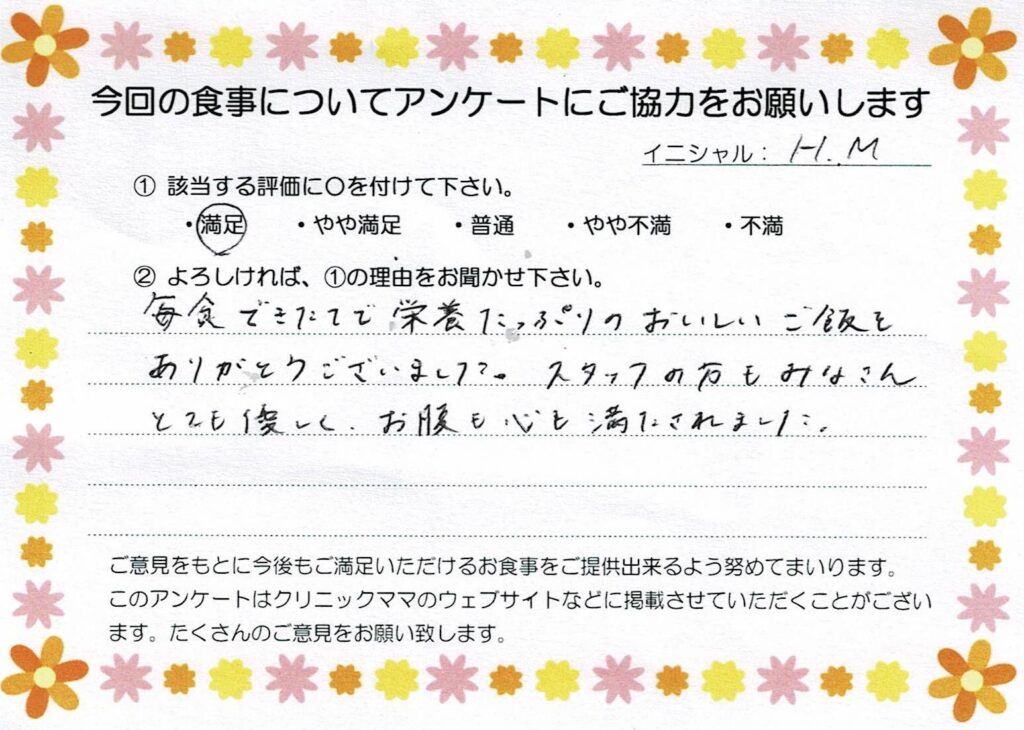 今回の食事についてアンケートにご協力をお願いします
イニシャル： H.M
① 該当する評価に○を付けて下さい。
・満足 ・やや満足 ・普通 ・やや不満 ・不満
② よろしければ、①の理由をお聞かせ下さい。
毎食できたてで栄養たっぷりのおいしいご飯を
ありがとうございました。スタッフの方もみなさん
とても優しく、お腹も心も満たされました。
ご意見をもとに今後もご満足いただけるお食事をご提供出来るよう努めてまいります。
このアンケートはクリニックママのウェブサイトなどに掲載させていただくことがござい
ます。たくさんのご意見をお願い致します。